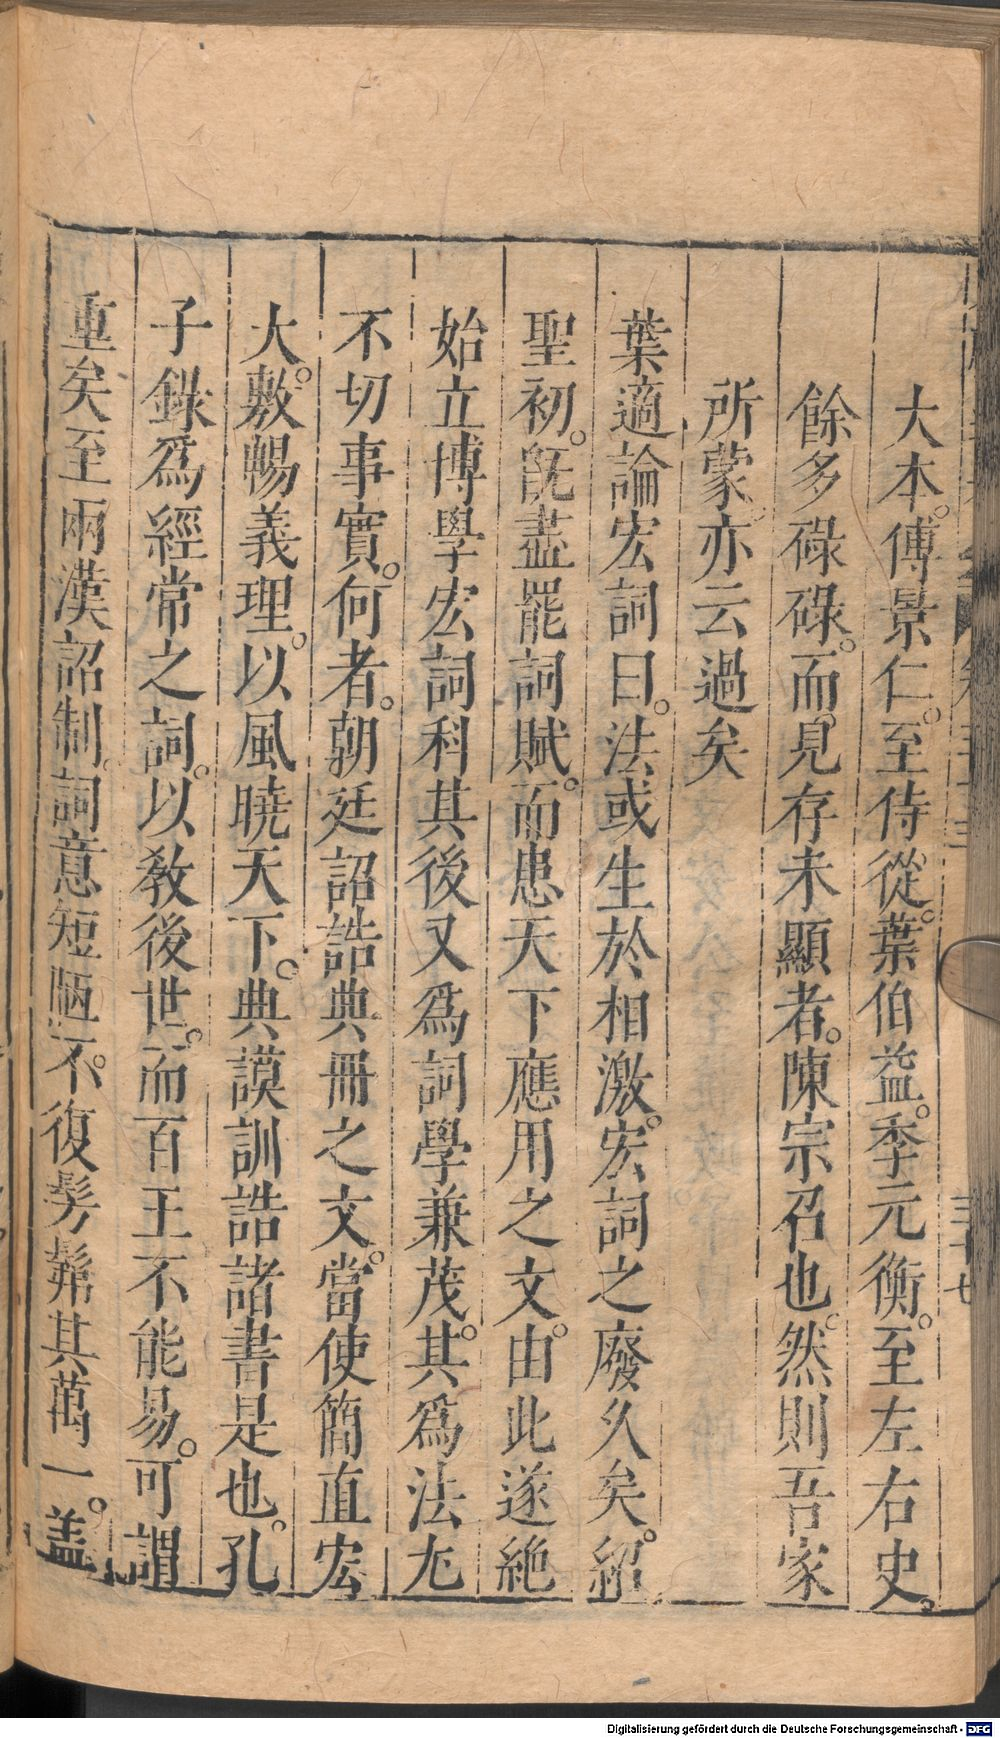 大本。傅景仁。至侍從。葉伯益。季元衡。至左右史。
餘多碌碌。而見存未顯者。陳宗召也。然則吾家
所蒙。亦云過矣
葉適論宏詞曰。法或生於相激。宏詞之廢久矣。紹
聖初。旣盡罷詞賦。而患天下應用之文。由此遂絶
始立博學宏詞科其後又爲詞學兼茂。其爲法尤
不切事實。何者。朝廷詔誥典冊之文。當使簡直宏
大。敷暢義理。以風曉天下。典謨訓誥諸書是也。孔
子錄爲經常之詞。以敎後世。而百王不能易。可謂
重矣至兩漢詔制。詞意短陋。不復髣髴其萬一。蓋
三十七
Digitalisierung gefördert durch die Deutsche Forschungsgemeinschaft - DFG